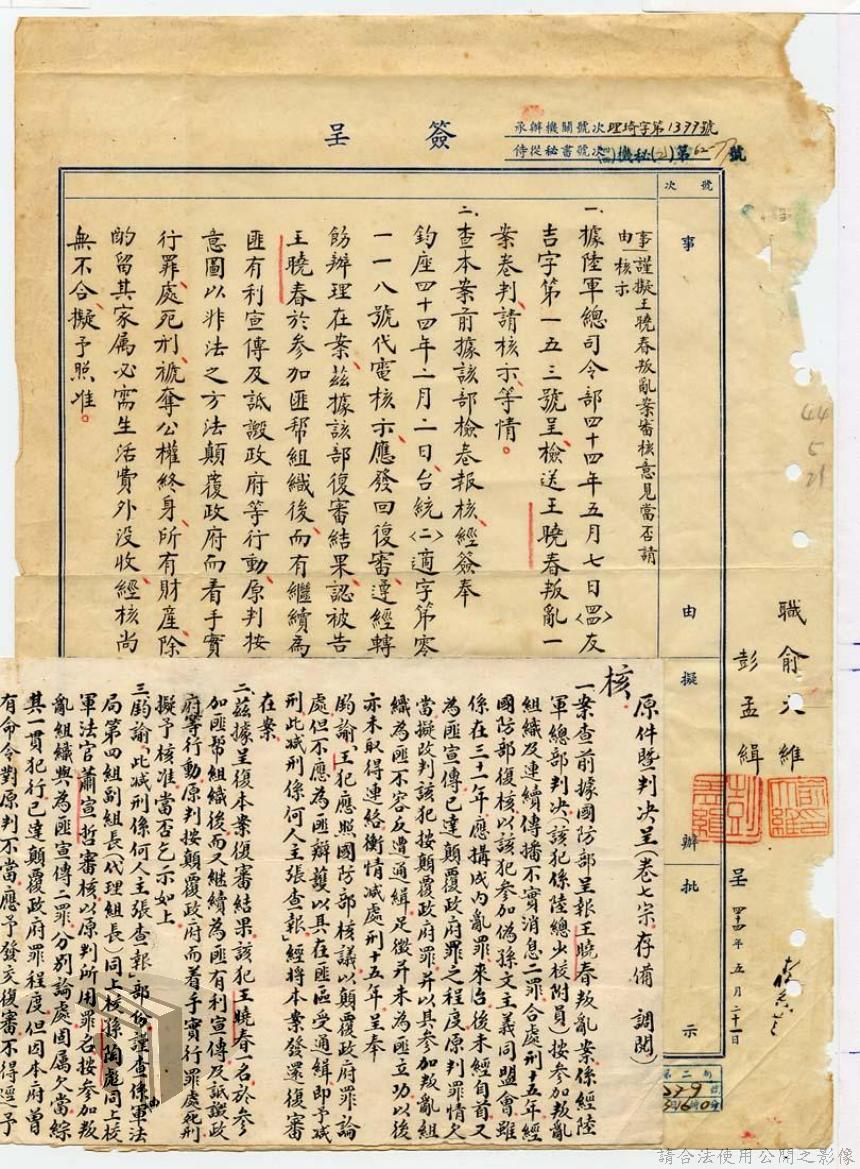 簽呈
承辦機關號次理琦字第1399號
侍從秘書號次機秘(乙)第62-號
號次
事由
擬辦
批示
事由 謹擬王曉春叛亂案審核意見當否請
核示
一、據陸軍總司令部四十四年五月七日<四四>友
吉字第一五三號呈、檢送王曉春叛亂一
案卷判、請核示、等情。
二、查本案前據該部檢卷報核、經簽奉
鈞座四十四年二月二日、台統<二>適字第零
一一八號代電核示、應發回復審、遵經轉
飭辦理在案、茲據該部復審結果、認被告
王曉春於參加匪幫組織後、而有繼續為
匪有利宣傳及詆譭政府等行動、原判按
意圖以非法之方法顛覆政府而着手實
行罪、處死刑、褫奪公權終身、所有財產除
酌留其家屬必需生活費外沒收、經核尚
無不合、擬予照准。
職俞大維
彭孟緝
呈 四十四年五月二十一日
44
5
21
原件暨判決呈(卷七宗存備調閱)
核
一案查前據國防部呈報王曉春叛亂案係經陸
軍總部判決(該犯係陸總少校附員)按參加叛亂
組織及連續傳播不實消息二罪合處刑十五年經
國防部復核以該犯參加偽孫文主義同盟會雖
係在三十一年應構成內亂罪來台後未經自首又
為匪宣傳已達顛覆政府罪之程度原判罪情欠
當擬改判該犯按顛覆政府罪并以其參加叛亂組
織為匪不容反遭通緝足徵并未為匪立功以後
亦未取得連絡衡情減處刑十五年呈奉
鈞諭「王犯應照國防部核議以顛覆政府罪論
處但不應為匪辯護以其在匪區受通緝即予減
刑此減刑係何人主張查報」經將本案發還復審
在案
二、茲據呈復本案復審結果該犯王曉春一名於參
加匪幫組織後而又繼續為匪有利宣傳及詆譭政
府等行動原判按顛覆政府而着手實行罪處死刑
擬予核准當否乞示如上
三、鈞諭「此減刑係何人主張查報」部份謹查係軍法
局第四組副組長(代理組長)同上校孫陶彪同上校
軍法官蕭宣哲審核以原判所用罪名按參加叛
亂組織與為匪宣傳二罪分別論處固屬欠當綜
其一貫犯行已達顛覆政府罪程度但因本府曾
有命令對原判不當應予發交復審不得逕予
請合法使用公開之影像